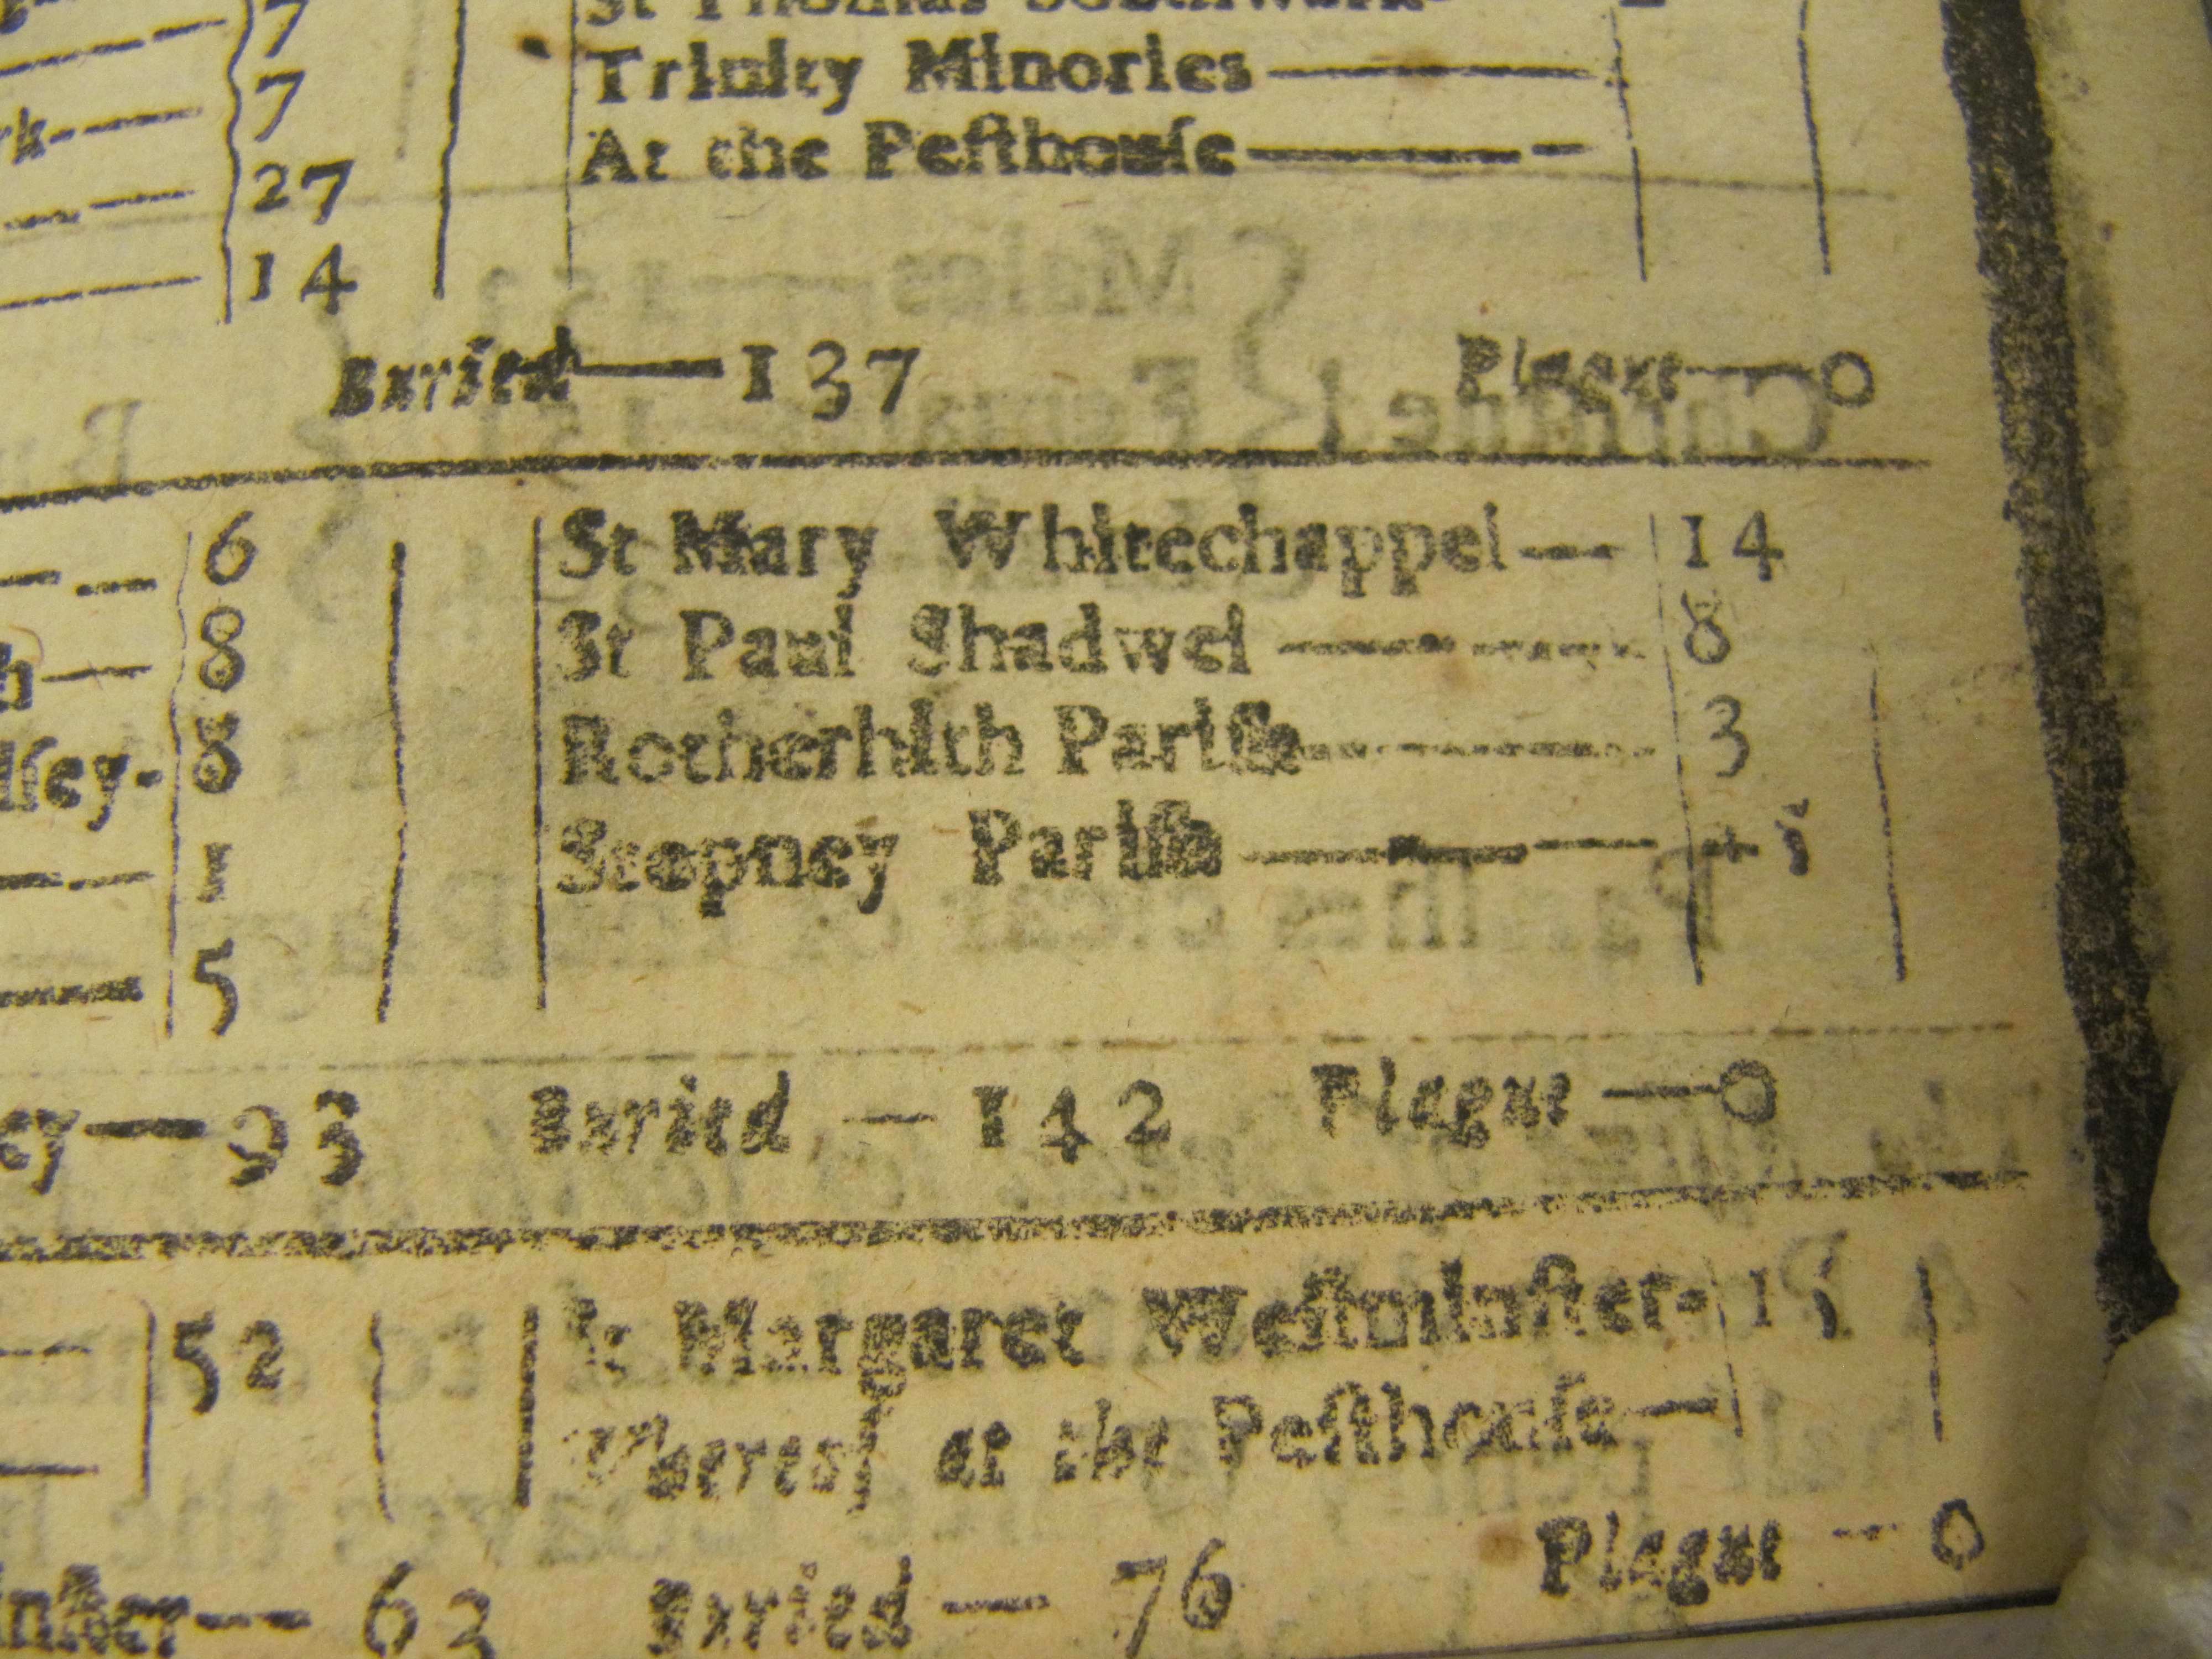 7 St Thomas Southwark
7 Trinity Minories
27 At the Pesthouſe
14
Buried 137 Plague 0
6 St Mary Whitechappel 14
8 St Paul Shadwel 8
8 Rotherhith Pariſh 3
1 Stepney Pariſh
5
93 Buried 142 Plague 0
52 Margaret Weſtminſter 15
Whereof at the Peſthouſe
63 Buried 76 Plague 0